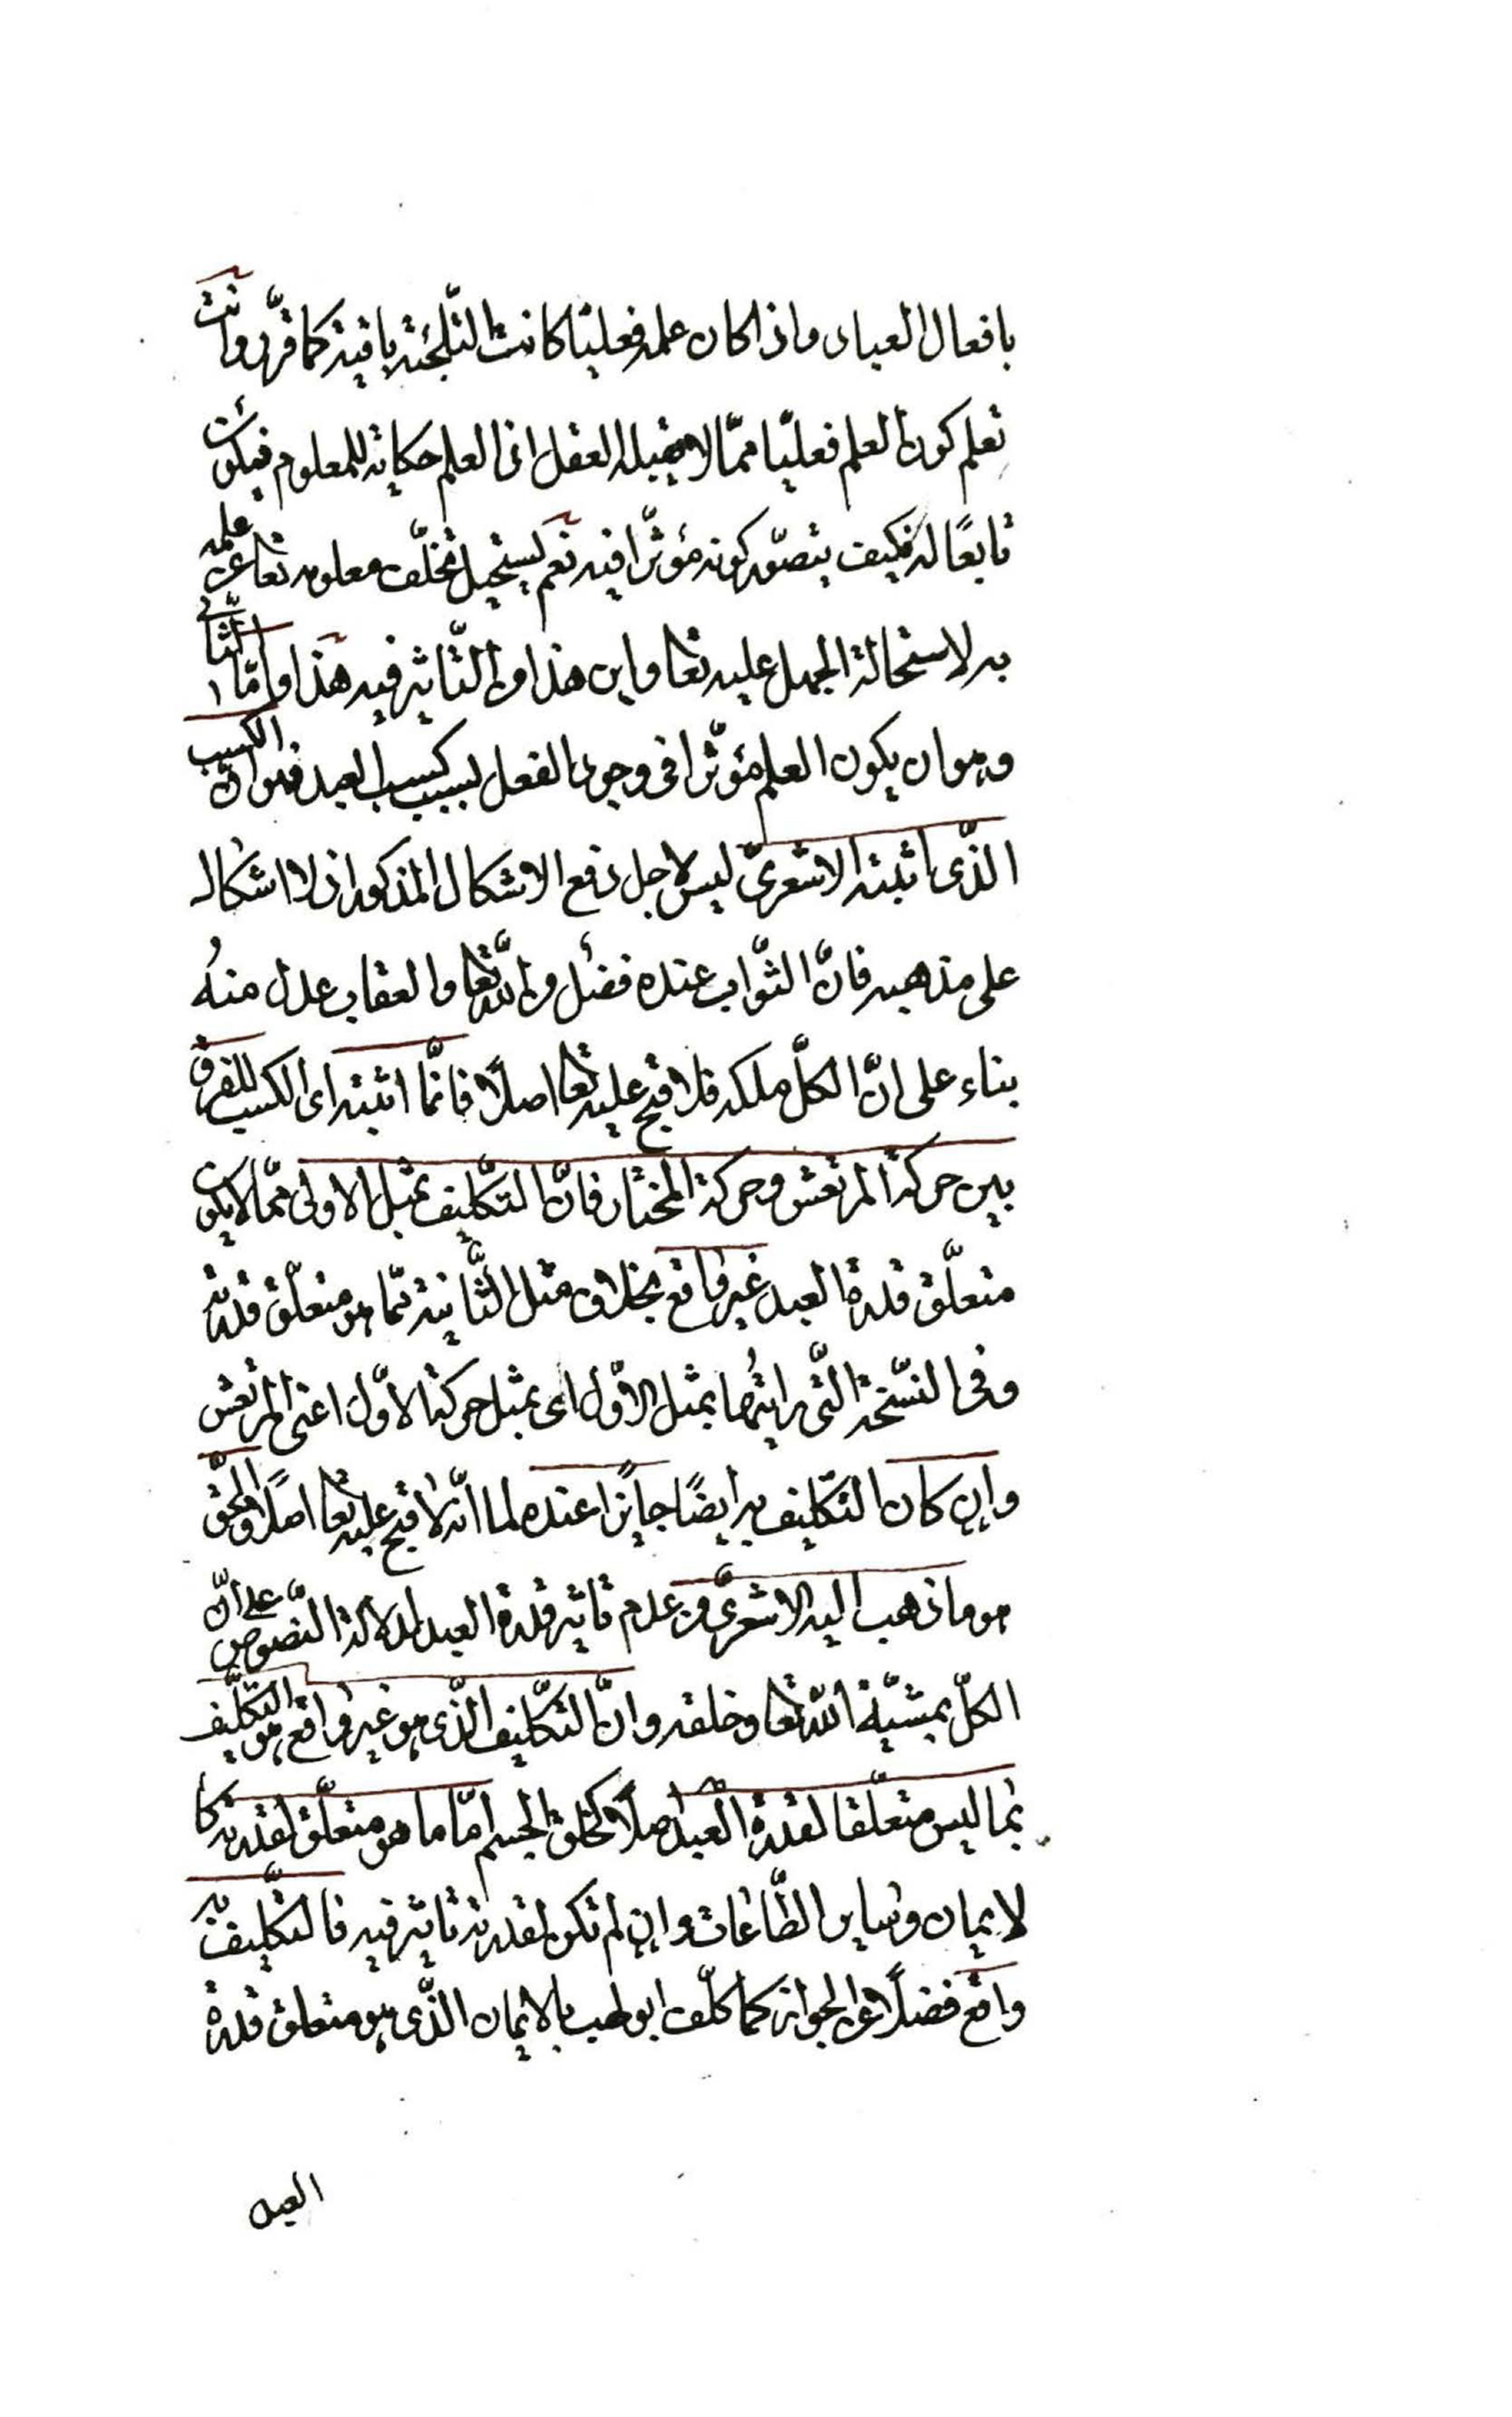 بافعال العباد واذا كان علمه فعليّا كانت التّلجئة باقية كما قرّر وانت
تعلم كون العلم فعليّا ممّا لا يقبله العقل اذ العلم حكاية للمعلوم فيكون
تابعًا له فكيف يتصوّر كونه مؤثّرا فيه نعم يستحيل تخلّف معلومه تعا عن علمه
به لاستحالة الجهل عليه تعا واين هذا من التّاثير فيه هذا وامّا الثّانى
وهو ان يكون العلم مؤثّرا فى وجود الفعل بسبب كسب العبد فهو انّ الكسب
الذّى اثبته الاشعرىّ ليس لاجل دفع الاشكال المذكور اذ لا اشكال
على مذهبه فانّ الثّواب عنده فضل من اللّه تعا والعقاب عدل منهُ
بناء على انّ الكلّ ملكه فلا قبح عليه تعا اصلًا فانّما اثبته اى الكسب للفرق
بين حركة المرتعش وحركة المختار فانّ التّكليف بمثل الاولى ممّا لا يكون
متعلّق قدرة العبد غير واقع بخلاف مثل الثّانية ممّا هو متعلّق قدرته
وفى النّسخة الّتى رايتُها بمثل الاوّل اى بمثل حركة الاوّل اعنى المرتعش
وان كان التّكليف به ايضًا جايزا عنده لما انّه لا قبح عليه تعا اصلًا والحقّ
هو ما ذهب اليه الاشعرىّ من عدم تاثير قدرة العبد لدلالة النّصوص على انّ
الكلّ بمشيّة اللّه تعا وخلقه وانّ التّكليف الذّى هو غير واقع هو التّكليف
بما ليس متعلّقا لقدرة العبد اصلًا كخلق الجسم امّا ما هو متعلّق لقدرته كا
لايمان وساير الطّاعات وان لم تكن لقدرته تاثير فيه فالتّكليف به
واقع فضلًا عن الجواز كما كلّف ابو لهب بالايمان الذّى هو متعلق قدرة
العبد